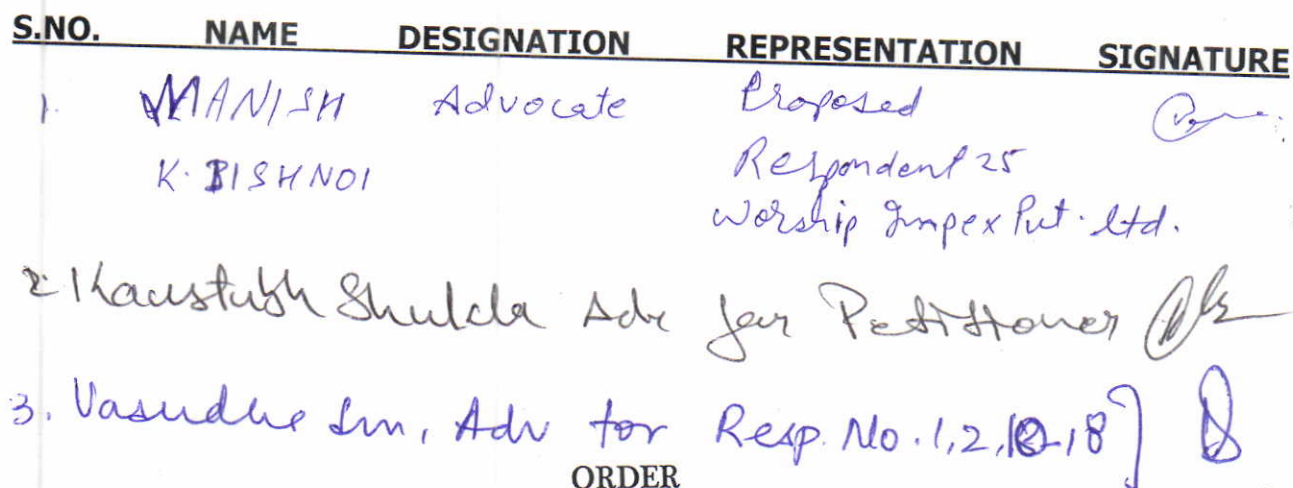 S.NO. NAME DESIGNATION REPRESENTATION SIGNATURE
1. MANISH Advocate Proposed
K. BISHNOI Respondent 25
Worship Impex Pvt. Ltd.
2. Kaustubh Shukla Adv for Petitioner
3. Vasudha Sen, Adv for Resp. No. 1,2, 18
ORDER